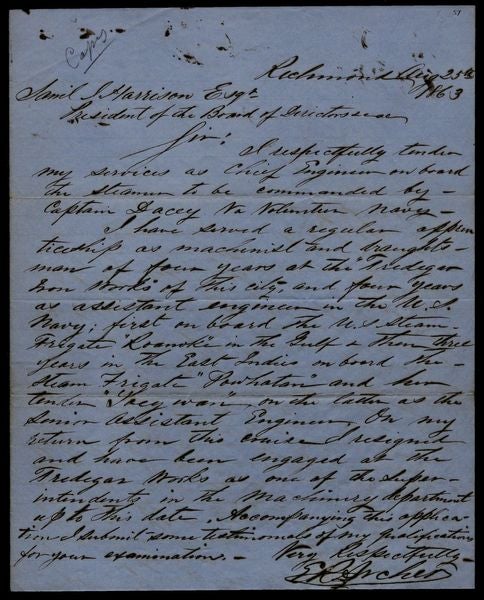 51
Caps
Richmond Aug 25th
1863
Saml J. Harrison Esqr
President of the Board of Directors &c &c
Sir:
I respectfully tender
my services as Chief Engineer on board
the steamer to be commanded by –
Captain Dacey Va Volunteer Navy –
I have served a regular appren
ticeship as machinist and draughts-
man of four years at the "Tredegar
Iron Works" of this city, and four years
as assistant engineer in the U.S.
Navy; first on board the U.S Steam
Frigate "Roanoke" in the Gulf & then three
years in the East Indies on board the
Steam Frigate "Powhatan" and her
tender "They wan" – on the latter as the
Senior Assistant Engineer, On my
return from this cruise I resigned
and have been engaged at the
Tredegar Works as one of the Super-
intendents in the Machinery department
up to this date. Accompanying this applica-
tion I submit some testimonials of my qualifications
for your examination. – Very Respectfully –
E R Archer